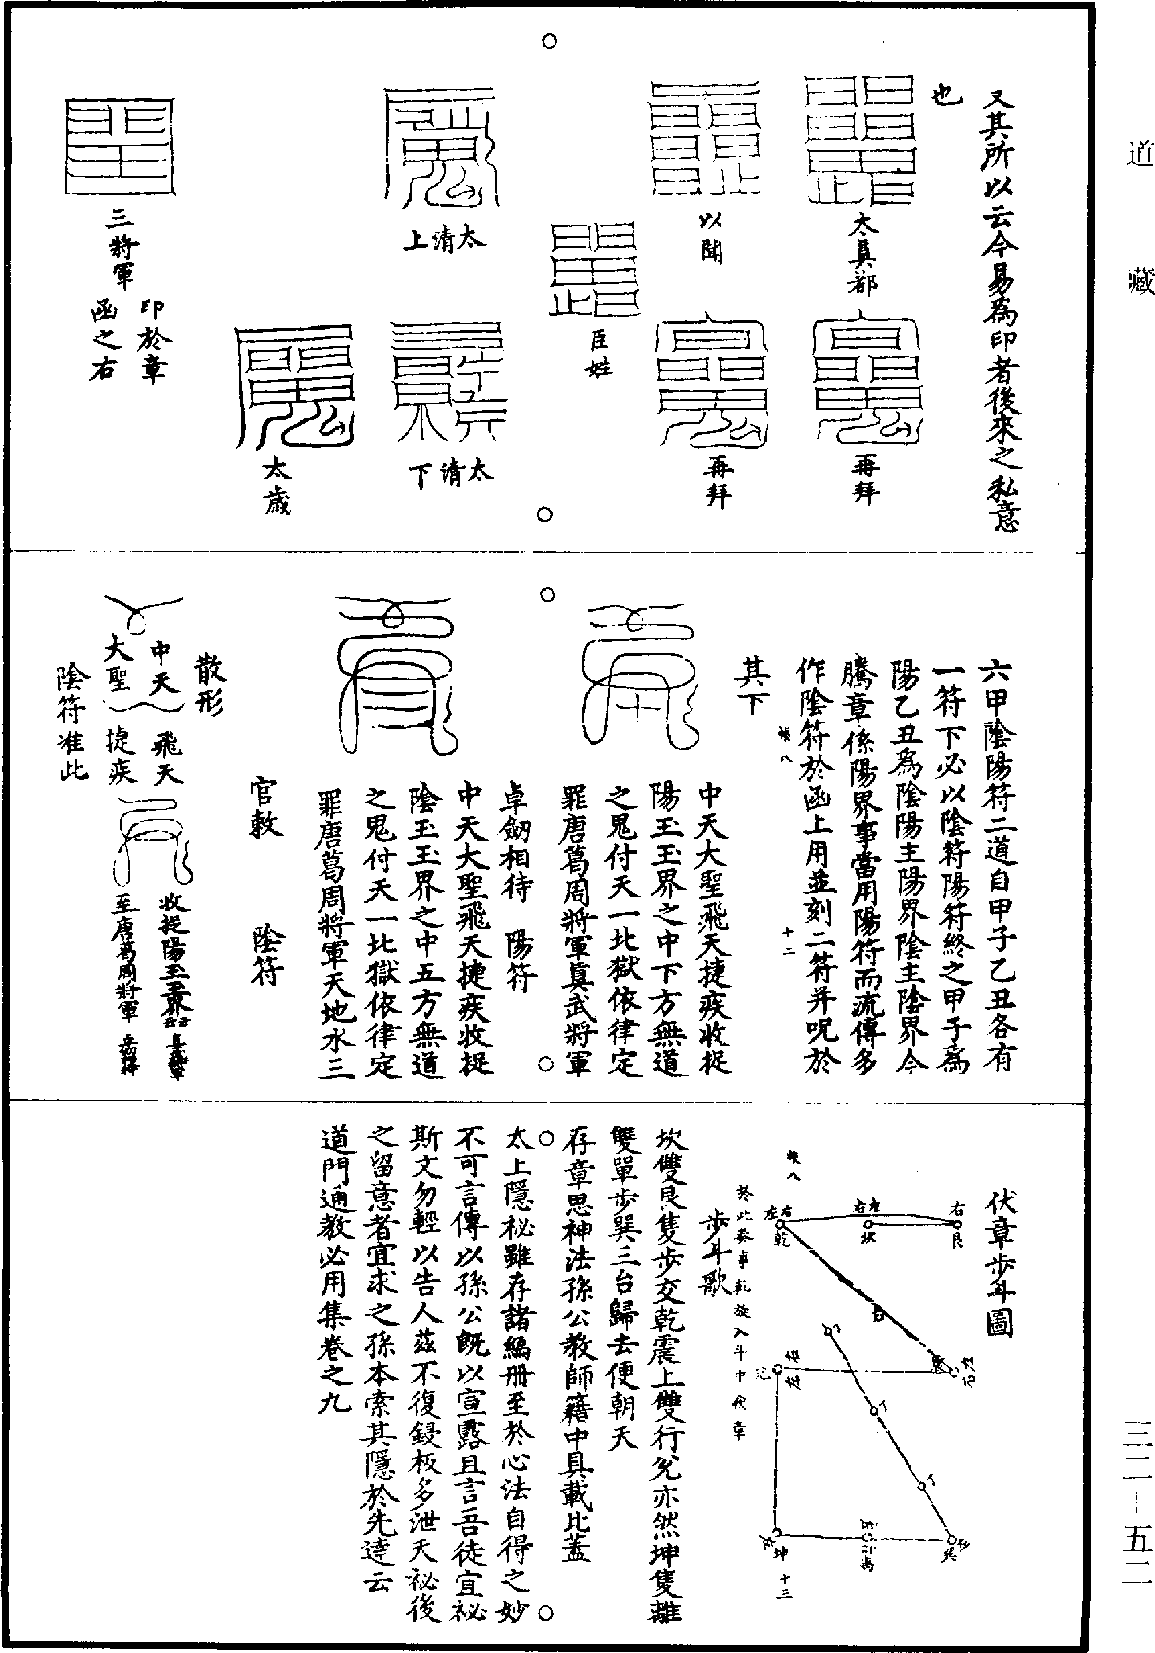 道藏
三二—五二
又其所以云今易為印者後來之私意
也
太真都
再拜
以聞
再拜
臣姓
太清上
太清下
太歲
三將軍
印於章
函之右
六甲陰陽符二道自甲子乙丑各有
一符下必以陰符陽符終之甲子為
陽乙丑為陰陽主陽界陰主陰界今
騰章係陽界事當用陽符而流傳多
作陰符於函上用並刻二符并呪於
其下
十二
中天大聖飛天捷疾收捉
陽玉玉界之中下方無道
之鬼付天一北獄依律定
罪唐葛周將軍真武將軍
卓劒相待　陽符
中天大聖飛天捷疾收捉
陰玉玉界之中五方無道
之鬼付天一北獄依律定
罪唐葛周將軍天地水三
官敕　陰符
散形
中天　飛天
大聖　捷疾
收捉陽玉玉界
至唐葛周將軍
陰符准此
伏章步斗圖
右
艮
左右
坎
左右
乾
坤
十三
巽
於此發事乾旋入斗中伏章
步斗歌
坎雙艮隻步交乾震上雙行兌亦然坤隻離
雙單步巽三台歸去便朝天
存章思神法孫公教師籍中具載此蓋
太上隱祕雖存諸編册至於心法自得之妙
不可言傳以孫公旣以宣露且言吾徒宜祕
斯文勿輕以告人茲不復鋟板多泄天祕後
之留意者宜求之孫本索其隱於先達云
道門通教必用集卷之九